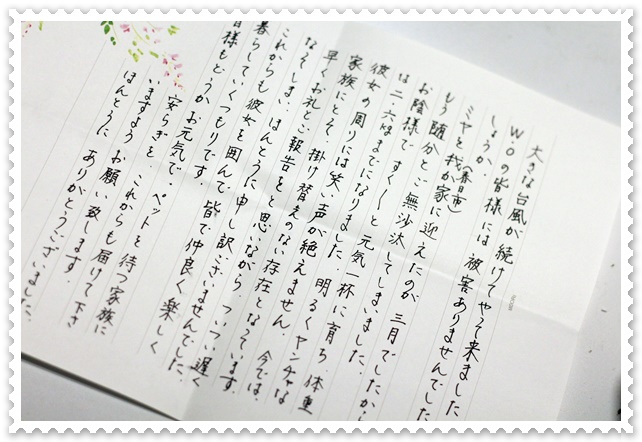 大きな台風が続けてやって来ました
W.oの皆様には被害ありませんでした
しょうか。
ミヤを我が家に迎えたのが三月でしたから
(春日市)
もう随分とご無沙汰してしまいました。
お陰様ですくすくと元気一杯に育ち、体重
は二・六kgまでになりました。明るくヤンチャな
彼女の周りには笑い声が絶えません。今では、
家族にとって掛け替えのない存在となっています。
早くお礼とご報告をと思いながら、ついつい遅く
なってしまい、ほんとうに申し訳ございませんでした。
これからも彼女を囲んで皆で仲良く楽しく
暮らしていくつもりです。
皆様もどうかお元気で。ペットを待つ家族に
安らぎを、これからも届けて下さ
いますようお願い致します。
ほんとうにありがとうございました。